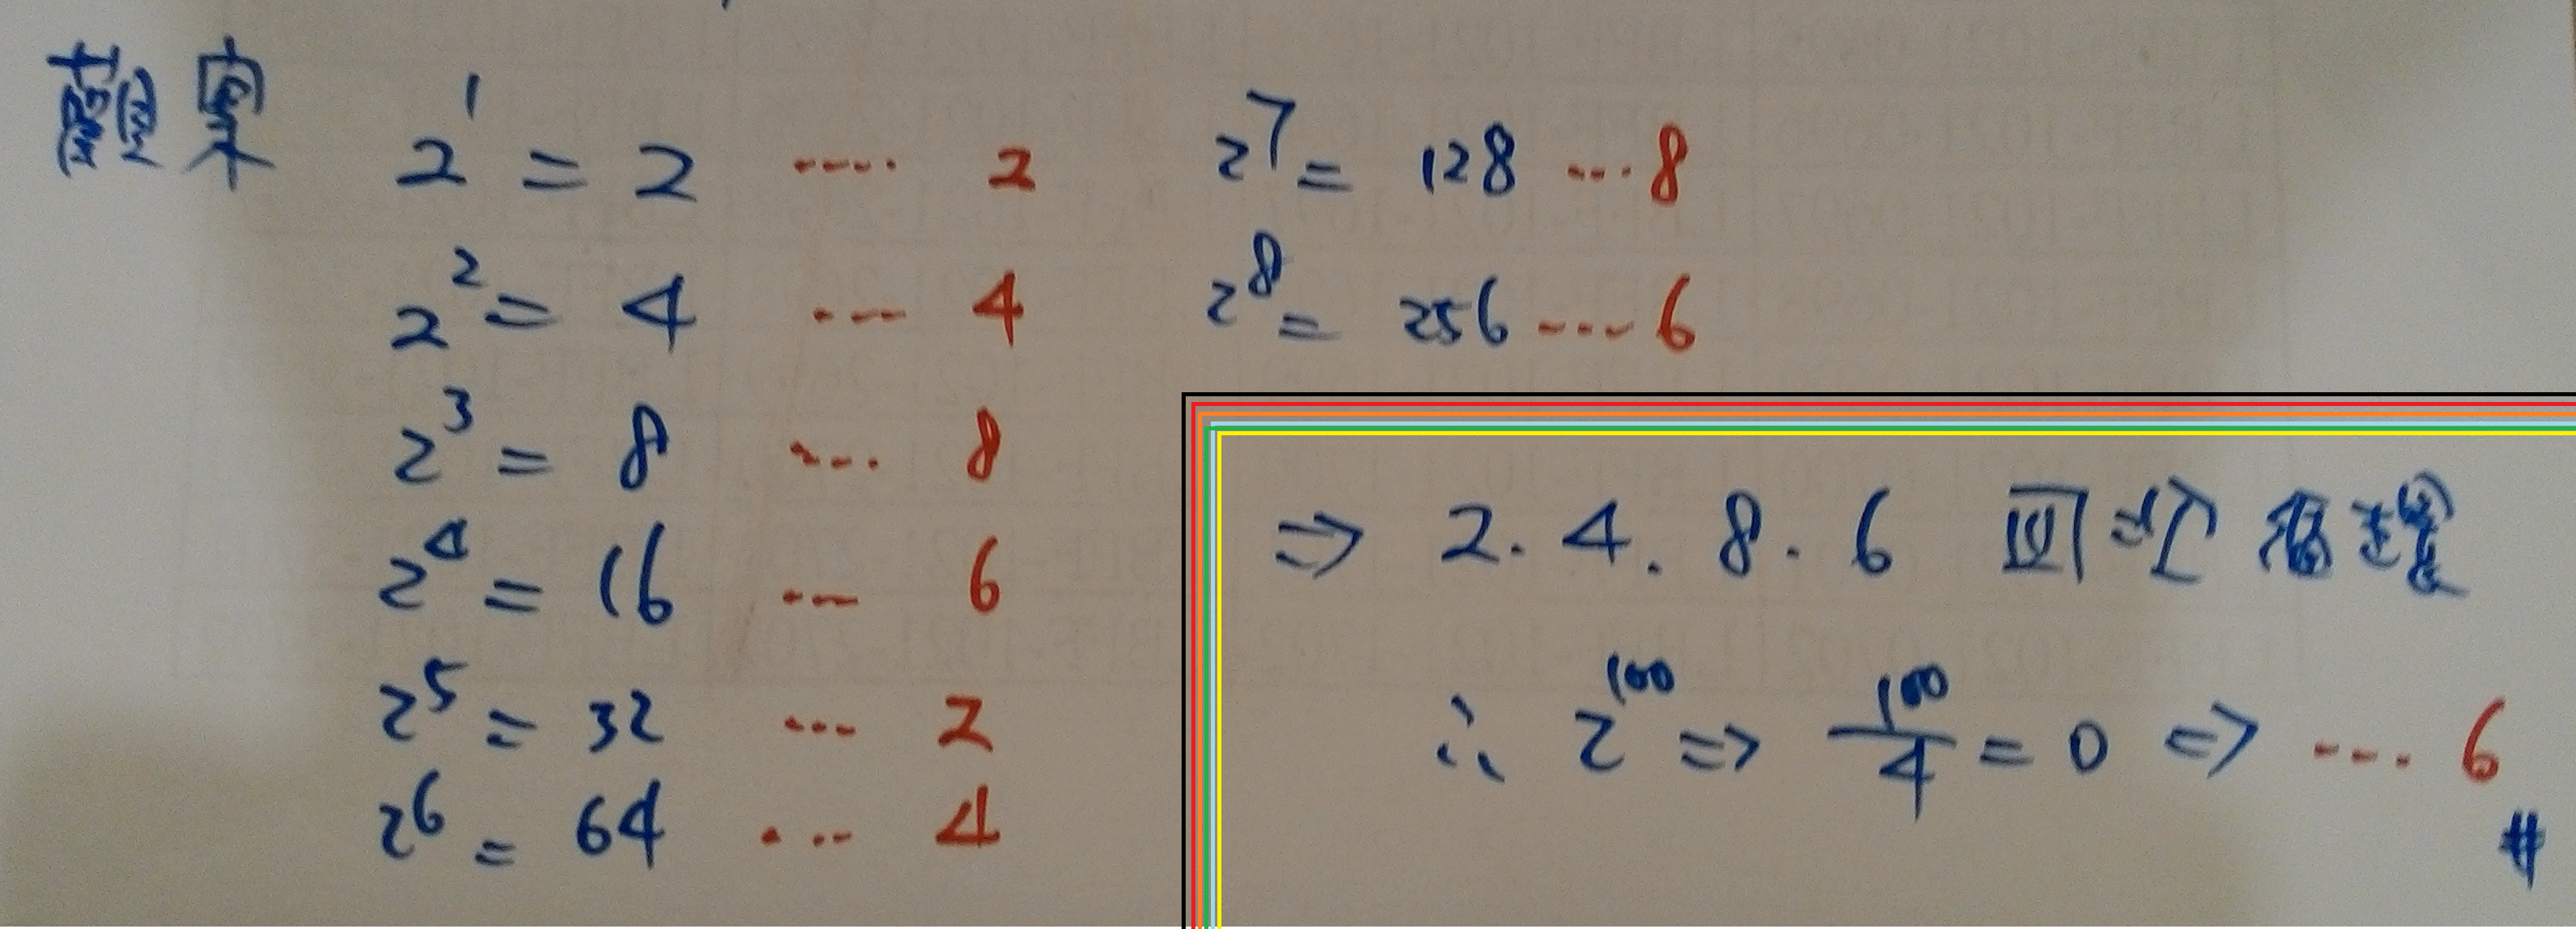 觀察 2¹ = 2 ···· 2
2² = 4 ··· 4
2³ = 8 ···· 8
2⁴ = 16 ··· 6
2⁵ = 32 ··· 2
2⁶ = 64 ··· 4
2⁷ = 128 ··· 8
2⁸ = 256 ···· 6
⇒ 2. 4. 8. 6
∴ 2¹⁰⁰ ⇒ 100/4 = 0 ⇒ ··· 6 #